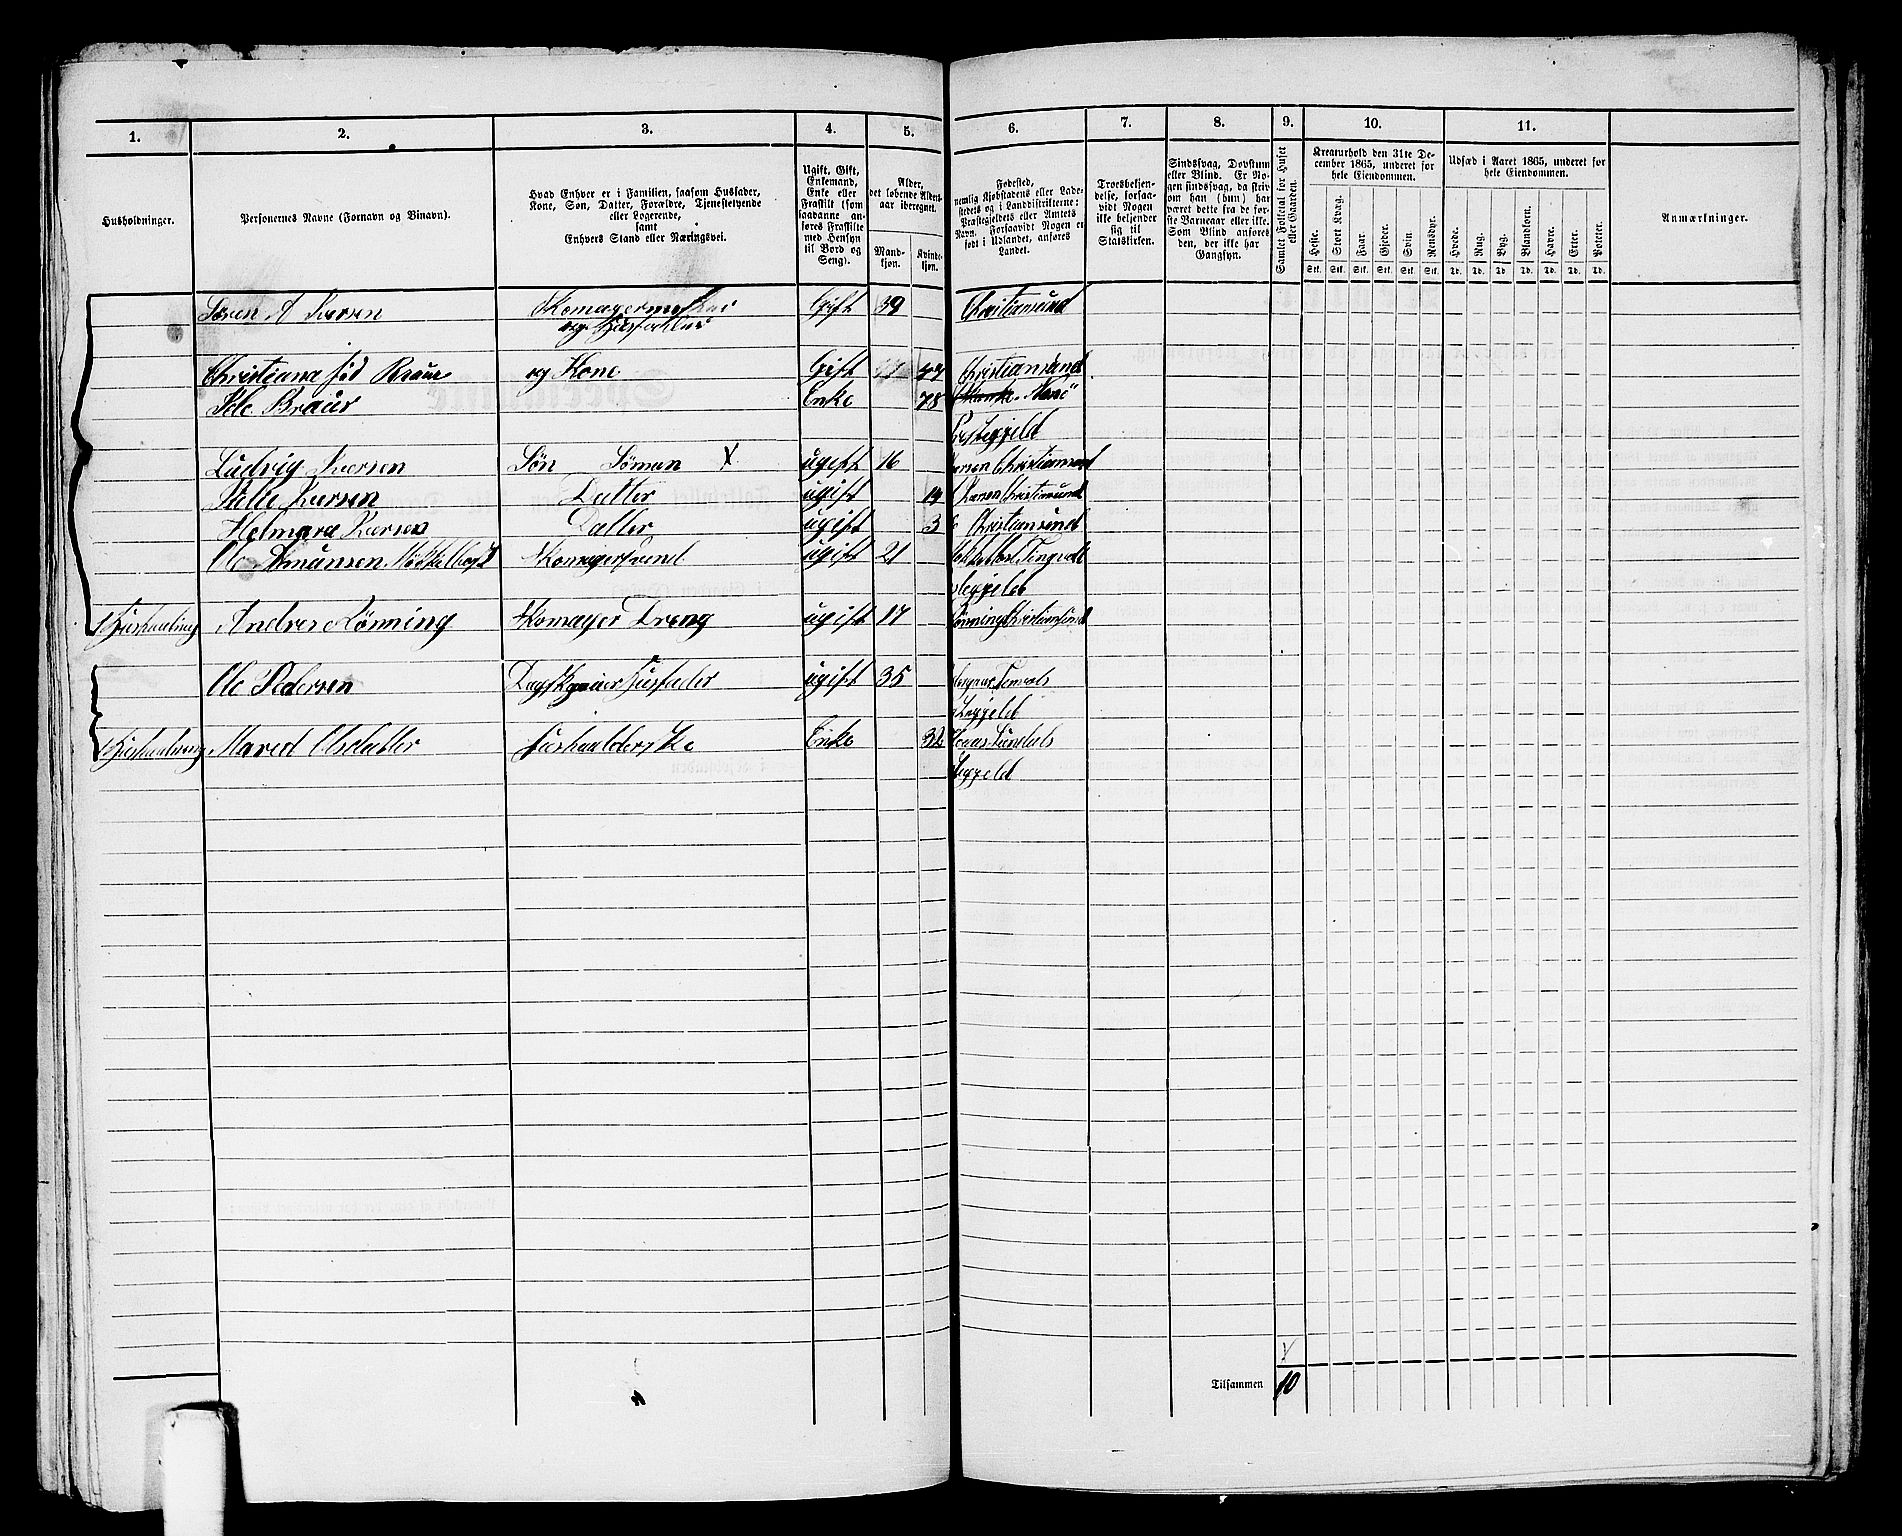 1. 2. 3. 4. 5. 6. 7. 8. 9. 10. 11.
Husholdninger.
Personernes Navne (Fornavn og Binavn).
Hvad Enhver er i Familien, saasom Husfader,
Kone, Søn, Datter, Forældre, Tjenestetyende
eller Logerende,
samt
Enhvers Stand eller Næringsvei.
Ugift, Gift,
Enkemand,
Enke eller
Fraskilt (som
saadanne an-
føres Fraskilte
med Hensyn
til Bord og
Seng).
Alder,
det løbende Alders-
aar iberegnet.
Mand-
kjøn.
Kvinde-
kjøn.
Fødested,
nemlig Kjøbstadens eller Lade-
stedets og i Landdistrikterne:
Præstegjeldets eller Amtets
Navn. Forsaavidt Nogen er
født i Udlandet, anføres
Landet.
Troesbekjen-
delse, forsaa-
vidt Nogen
ikke bekjender
sig til
Statskirken.
Sindssvag, Døvstum
eller Blind. Er No-
gen sindssvag, da skriv
om han (hun) har
været dette fra de før-
ste Barneaar eller ikke.
Som Blind anføres
den, der ikke har
Gangsyn.
Samlet Folketal for Huset
eller Gaarden.
Kreaturhold den 31te De-
cember 1865, underet for
hele Eiendommen.
Heste. Stort Kvæg. Faar. Gjeder. Svin. Rensdyr.
Stk. Stk. Stk. Stk. Stk. Stk.
Udsæd i Aaret 1865, underet for
hele Eiendommen.
Hvede. Rug. Byg. Blandkorn. Havre. Erter. Poteter.
Td. Td. Td. Td. Td. Td. Td.
Anmærkninger.
Gift 39 Christiansund
og Husfader
Christiana fød Braur og Kone Gift 47 Christiansund
Braur Enke 78
Prestegjeld
Ludvig Larsen Søn Søman X ugift 16 Christiansund
Larsen Datter ugift 14 Christiansund
Larsen Datter ugift 3 Christiansund
Ole Skomagersvend ugift 21 Tingvold
Andres Rønning Skomager Dreng ugift 17 Christiansund
Ole Pedersen Husfader ugift 35
Mared Olsdatter Husholderske Enke 32 Sundals
Tilsammen 10